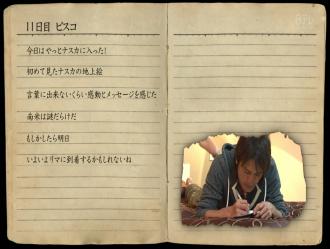 11日目 ピスコ
今日はやっとナスカに入った!
初めて見たナスカの地上絵
言葉に出来ないくらい感動とメッセージを感じた
南米は謎だらけだ
もしかしたら明日
いよいよリマに到着するかもしれないね